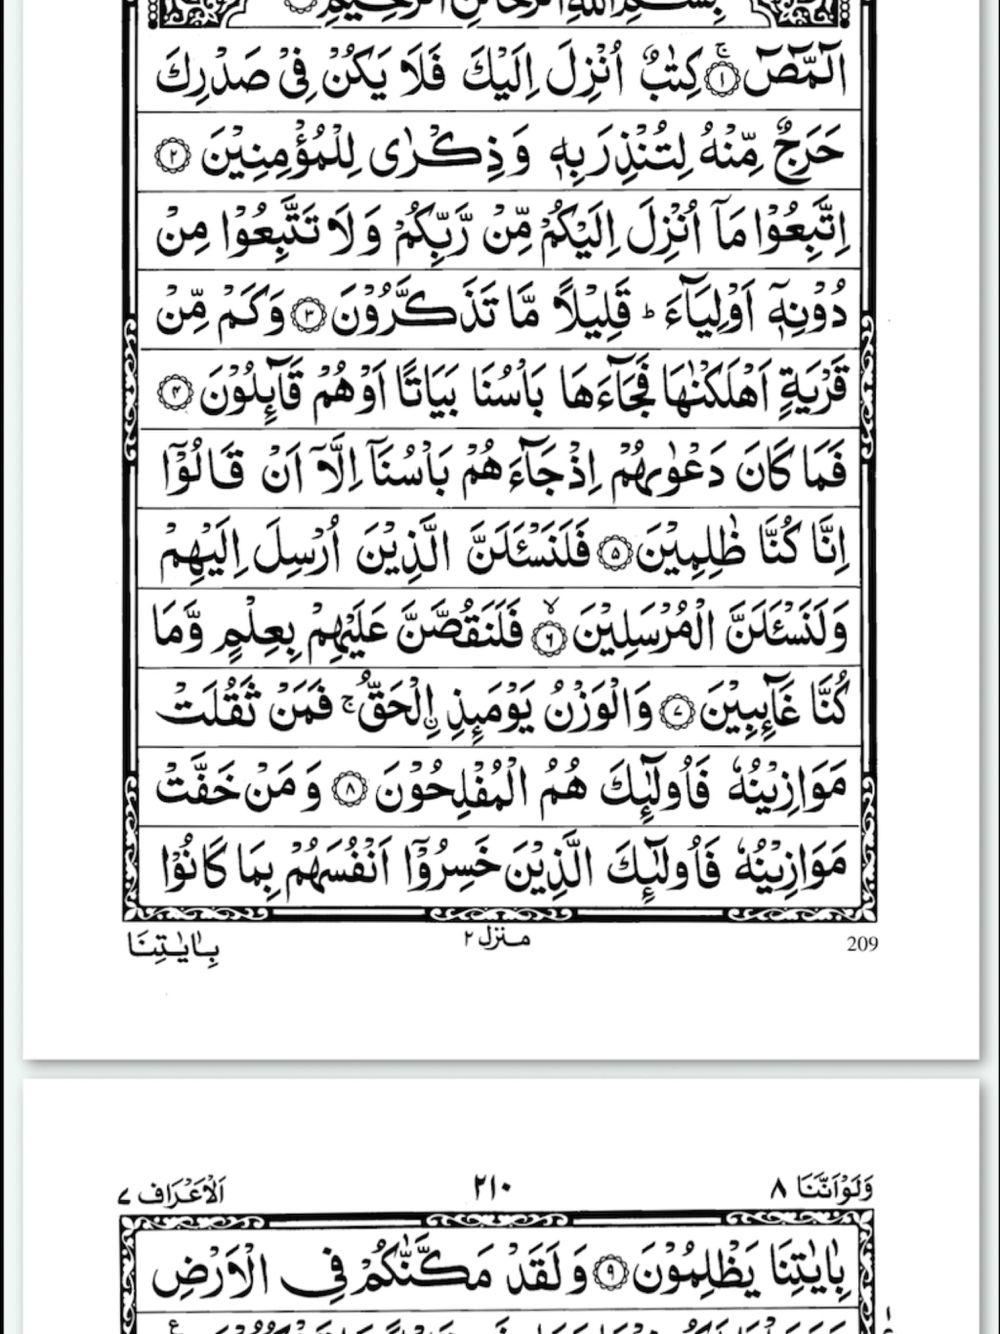 بِسْمِ اللهِ الرَّحْمٰنِ الرَّحِيْمِ
الٓمّٓصٓ ۚ﴿۱﴾ كِتٰبٌ اُنْزِلَ اِلَيْكَ فَلَا يَكُنْ فِيْ صَدْرِكَ
حَرَجٌ مِّنْهُ لِتُنْذِرَ بِهٖ وَ ذِكْرٰى لِلْمُؤْمِنِيْنَ ﴿۲﴾
اِتَّبِعُوْا مَاۤ اُنْزِلَ اِلَيْكُمْ مِّنْ رَّبِّكُمْ وَ لَا تَتَّبِعُوْا مِنْ
دُوْنِهٖۤ اَوْلِيَآءَ ؕ قَلِيْلًا مَّا تَذَكَّرُوْنَ ﴿۳﴾ وَ كَمْ مِّنْ
قَرْيَةٍ اَهْلَكْنٰهَا فَجَآءَهَا بَاْسُنَا بَيَاتًا اَوْ هُمْ قَآئِلُوْنَ ﴿۴﴾
فَمَا كَانَ دَعْوٰىهُمْ اِذْ جَآءَهُمْ بَاْسُنَاۤ اِلَّاۤ اَنْ قَالُوْۤا
اِنَّا كُنَّا ظٰلِمِيْنَ ﴿۵﴾ فَلَنَسْـَٔلَنَّ الَّذِيْنَ اُرْسِلَ اِلَيْهِمْ
وَ لَنَسْـَٔلَنَّ الْمُرْسَلِيْنَ ۙ﴿۶﴾ فَلَنَقُصَّنَّ عَلَيْهِمْ بِعِلْمٍ وَّ مَا
كُنَّا غَآئِبِيْنَ ﴿۷﴾ وَ الْوَزْنُ يَوْمَىِٕذِ ِ۟الْحَقُّ ۚ فَمَنْ ثَقُلَتْ
مَوَازِيْنُهٗ فَاُولٰٓئِكَ هُمُ الْمُفْلِحُوْنَ ﴿۸﴾ وَ مَنْ خَفَّتْ
مَوَازِيْنُهٗ فَاُولٰٓئِكَ الَّذِيْنَ خَسِرُوْۤا اَنْفُسَهُمْ بِمَا كَانُوْا
بِاٰيٰتِنَا
منزل ۲
209
وَلَوْاَنَّنَا ۸
۲۱۰
اَلْاَعْرَاف ۷
بِاٰيٰتِنَا يَظْلِمُوْنَ ﴿۹﴾ وَ لَقَدْ مَكَّنّٰكُمْ فِي الْاَرْضِ